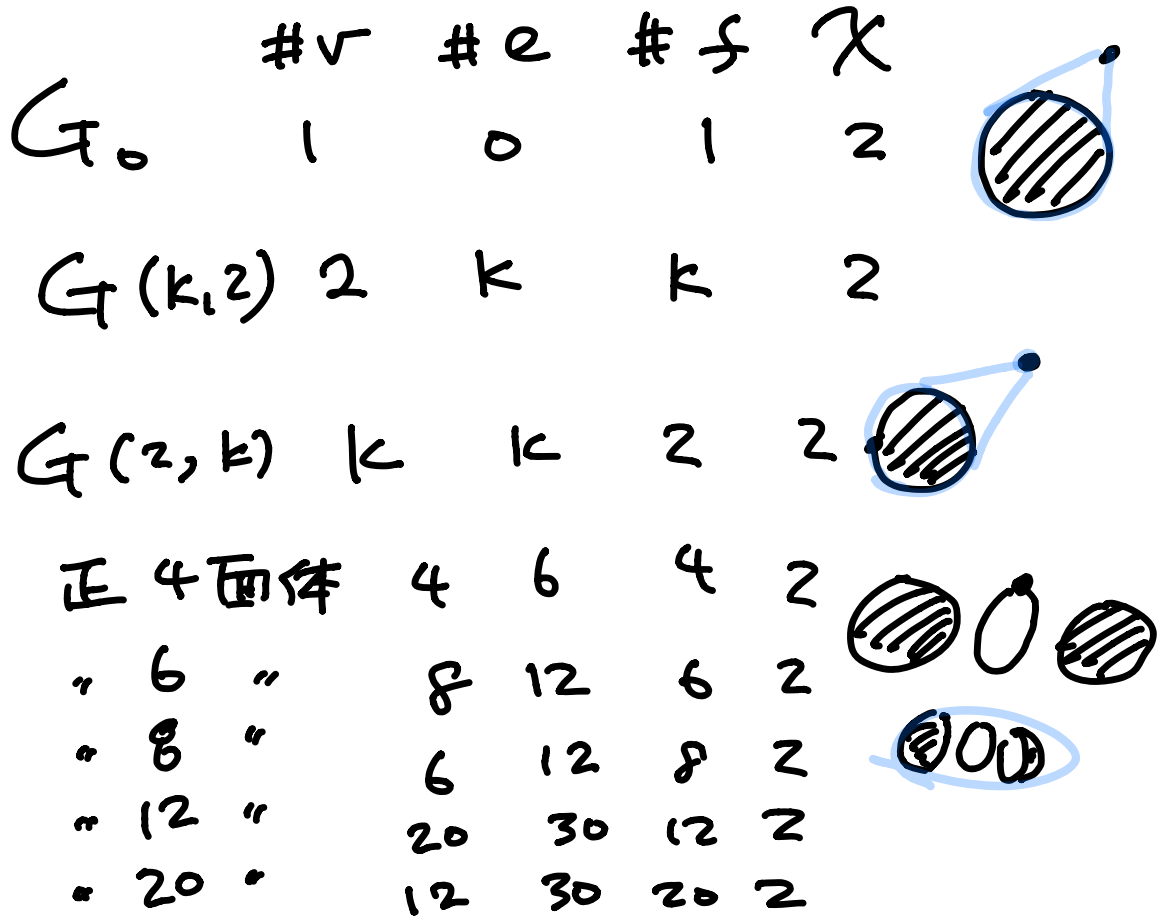 #v #e #f χ
G₀ 1 0 1 2
G(k,2) 2 k k 2
G(2,k) k k 2 2
正4面体 4 6 4 2
〃 6 〃 8 12 6 2
〃 8 〃 6 12 8 2
〃 12 〃 20 30 12 2
〃 20 〃 12 30 20 2